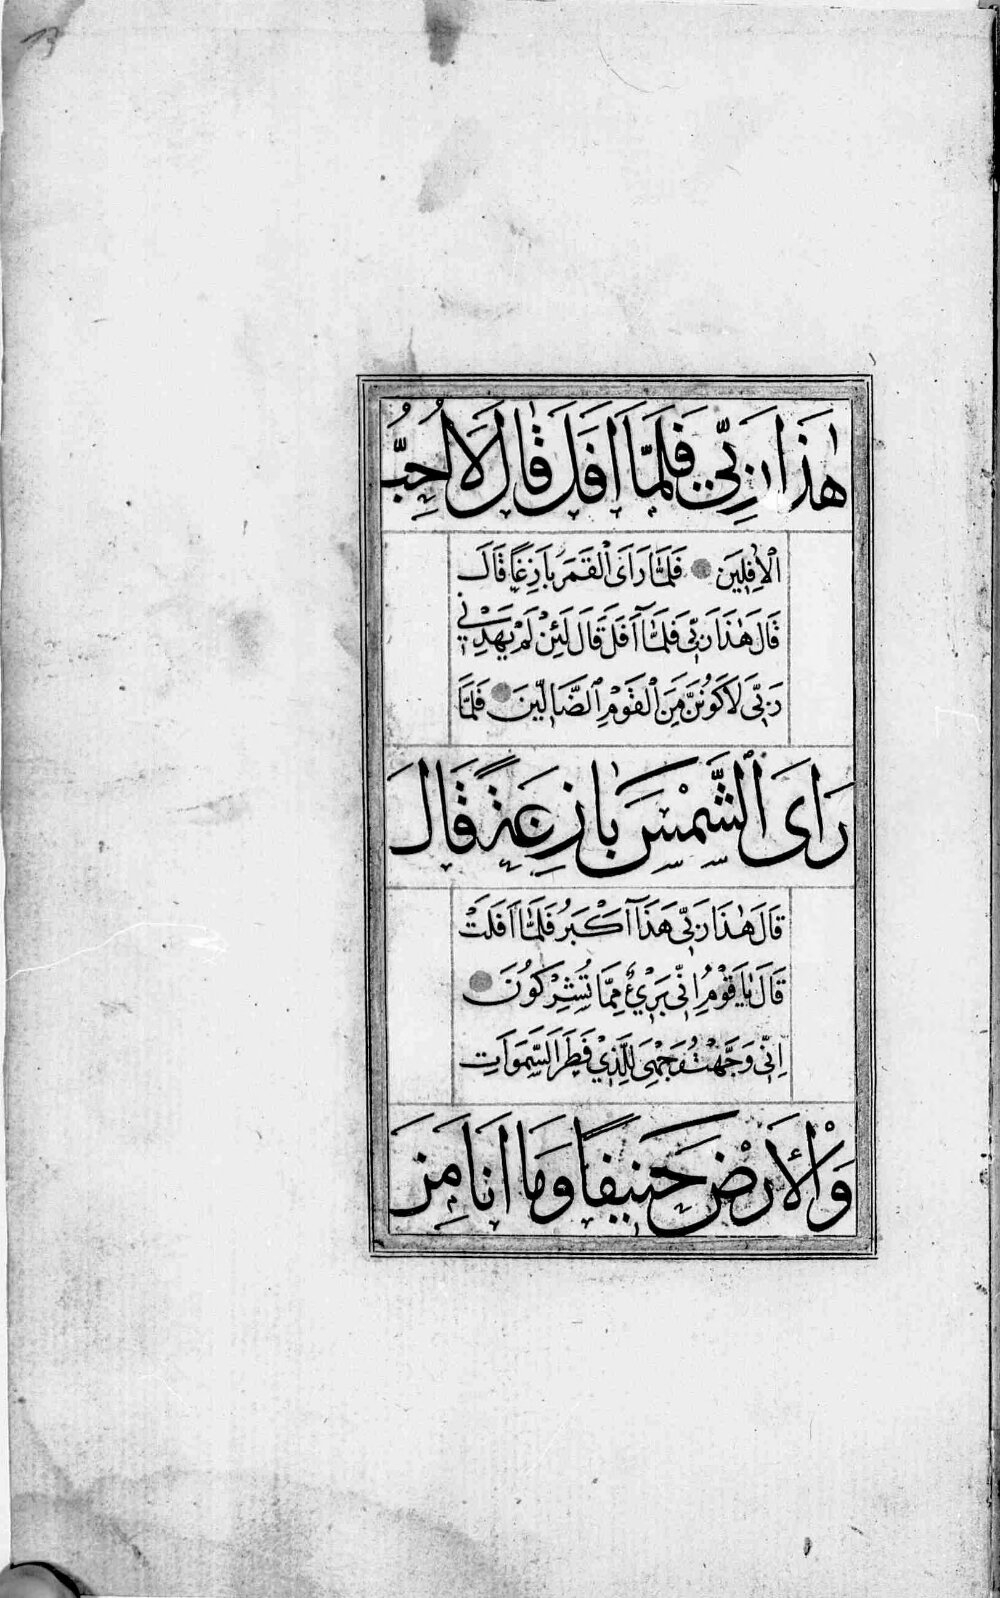 هٰذَا رَبِّي فَلَمَّا اَفَلَ قَالَ لَا اُحِبُّ
الْاٰفِلِينَ فَلَمَّا رَاَى الْقَمَرَ بَازِغًا قَالَ
قَالَ هٰذَا رَبِّي فَلَمَّا اَفَلَ قَالَ لَئِنْ لَمْ يَهْدِنِي
رَبِّي لَاَكُونَنَّ مِنَ الْقَوْمِ الضَّالِّينَ فَلَمَّا
رَاَى الشَّمْسَ بَازِغَةً قَالَ
قَالَ هٰذَا رَبِّي هَذَا اَكْبَرُ فَلَمَّا اَفَلَتْ
قَالَ يَا قَوْمِ اِنِّي بَرِيْءٌ مِمَّا تُشْرِكُونَ
اِنِّي وَجَّهْتُ وَجْهِيَ لِلَّذِيْ فَطَرَ السَّمَوَاتِ
وَالْاَرْضَ حَنِيفًا وَمَا اَنَا مِنَ